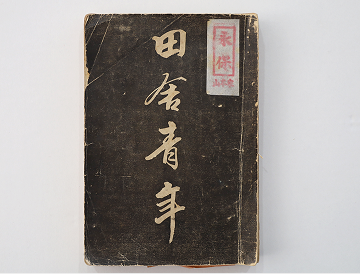 田舎青年
永保